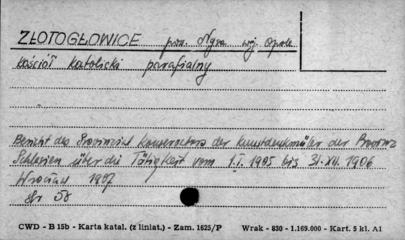 ZŁOTOGŁOWICE pow. Nysa woj. Opole
kościół katolicki parafialny
Bericht des Provinzial Konservators der Kunstdenkmäler der Provinz
Schlesien über die Tätigkeit vom 1.I.1905 bis 31.XII.1906
Wrocław 1907
str 58
CWD - B 15b - Karta katal. (z liniat.) - Zam. 1625/P Wrak - 830 - 1.169.000 - Kart. 5 kl. A1